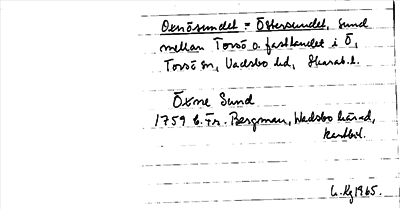 Oxnösundet = Östersundet, sund
mellan Torsö o. fastlandet i Ö,
Torsö sn, Vadsbo hd, Skarab. l.
Öxne Sund
1759 E. Fr. Bergman, Wadsbo härad,
kartbil.
L. Hg 1965.